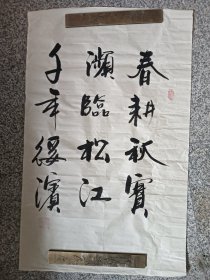 春耕秋實
瀕臨松江
千年綏濱